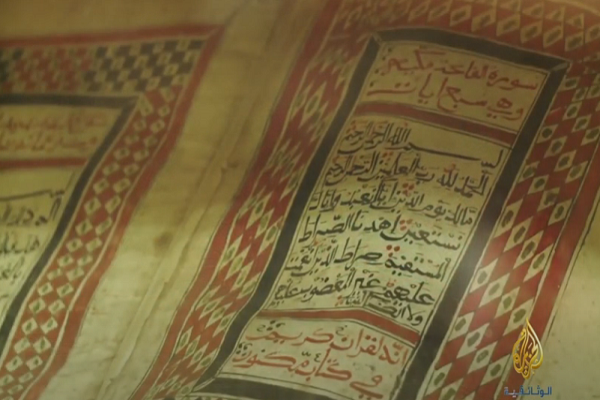 سورة الفاتحة مكية
وهي سبع ايات
بسم الله الرحمن الرحيم
الحمد لله رب العالمين الرحمن الرحيم
ملك يوم الدين اياك نعبد واياك
نستعين اهدنا الصراط
المستقيم صراط الذين انعمت
عليهم غير المغضوب عليهم
ولا الضالين
انه لقران كريم
في كتاب مكنون
الوثائقية